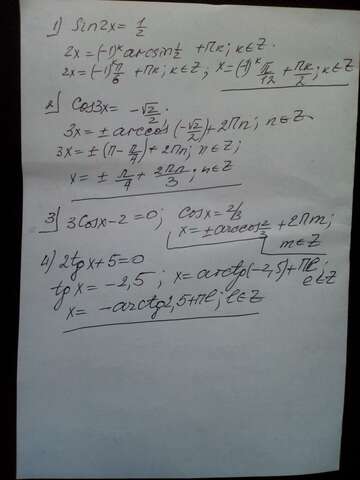 1) Sin2x = 1/2
2x = (-1)^k arcsin 1/2 + πk; k∈Z.
2x = (-1)^k π/6 + πk; k∈Z; x = (-1)^k π/12 + πk/2; k∈Z
2) Cos3x = -√2/2;
3x = ± arccos(-√2/2) + 2πn; n∈Z
3x = ± (π - π/4) + 2πn; n∈Z;
x = ± π/4 + 2πn/3; n∈Z
3) 3Cosx - 2 = 0; cosx = 2/3
x = ± arccos 2/3 + 2πm;
m∈Z
4) 2tgx + 5 = 0
tgx = -2,5; x = arctg(-2,5) + πl;
l∈Z
x = -arctg2,5 + πl; l∈Z